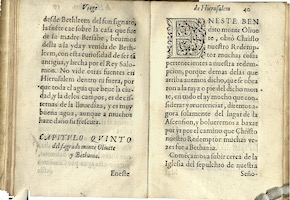 Viage
desde Bethleem del son signato,
la cual cae sobre la casa que fue
de la madre Bersabe, beuimos
della a la yda y venida de Beth-
leem, con esta curiosidad de ser tã
antigua, y hecha por el Rey Salo-
mon. No vide otras fuentes en
Hierusalem dentro ni fuera, por
que toda el agua que beue la ciu-
dad, y la de los campos, es de cis-
ternas de la llouediza, y es muy
buena agua, aunque a muchos
haze daño su frescura.
CAPITVLO QVINTO
del sagrado monte Oliuete
y Bethania.
Eneste
de Hierusalem
40
ENESTE BEN
dito monte Oliue
te, obró Christo
nuestro Redemp-
tor muchas cosas
pertenecientes a nuestra re-
dempcion, porque demas de las
arriba auemos dicho, que se obra-
ron a la cayda del por do no mon
te, en todo el ay mucho que con-
siderar y reuerenciar, diremos
agora solamente del lugar de la
Ascension, y bolueremos a baxar
por ya por el camino que Christo
nuestro Redemptor muchas vezes
fue a Bethania.
Començamos a subir cerca de la
Iglesia del sepulchro de nuestra
Seño-